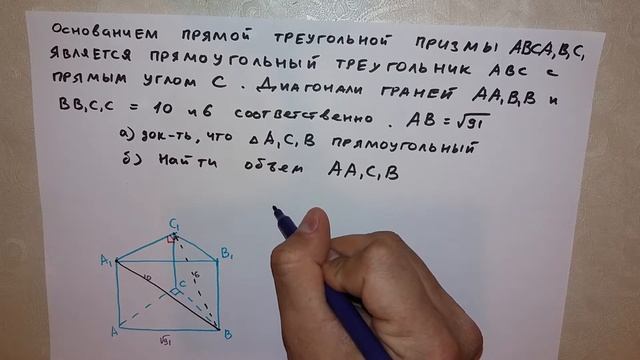 Основанием прямой треугольной призмы ABCA₁B₁C₁
является прямоугольный треугольник ABC с
прямым углом C. Диагонали граней AA₁B₁B и
BB₁C₁C = 10 и 6 соответственно. AB = √91
а) док-ть, что △ A₁C₁B прямоугольный
б) Найти объем AA₁C₁B
C₁
A₁
B₁
10
6
C
A
B
√91